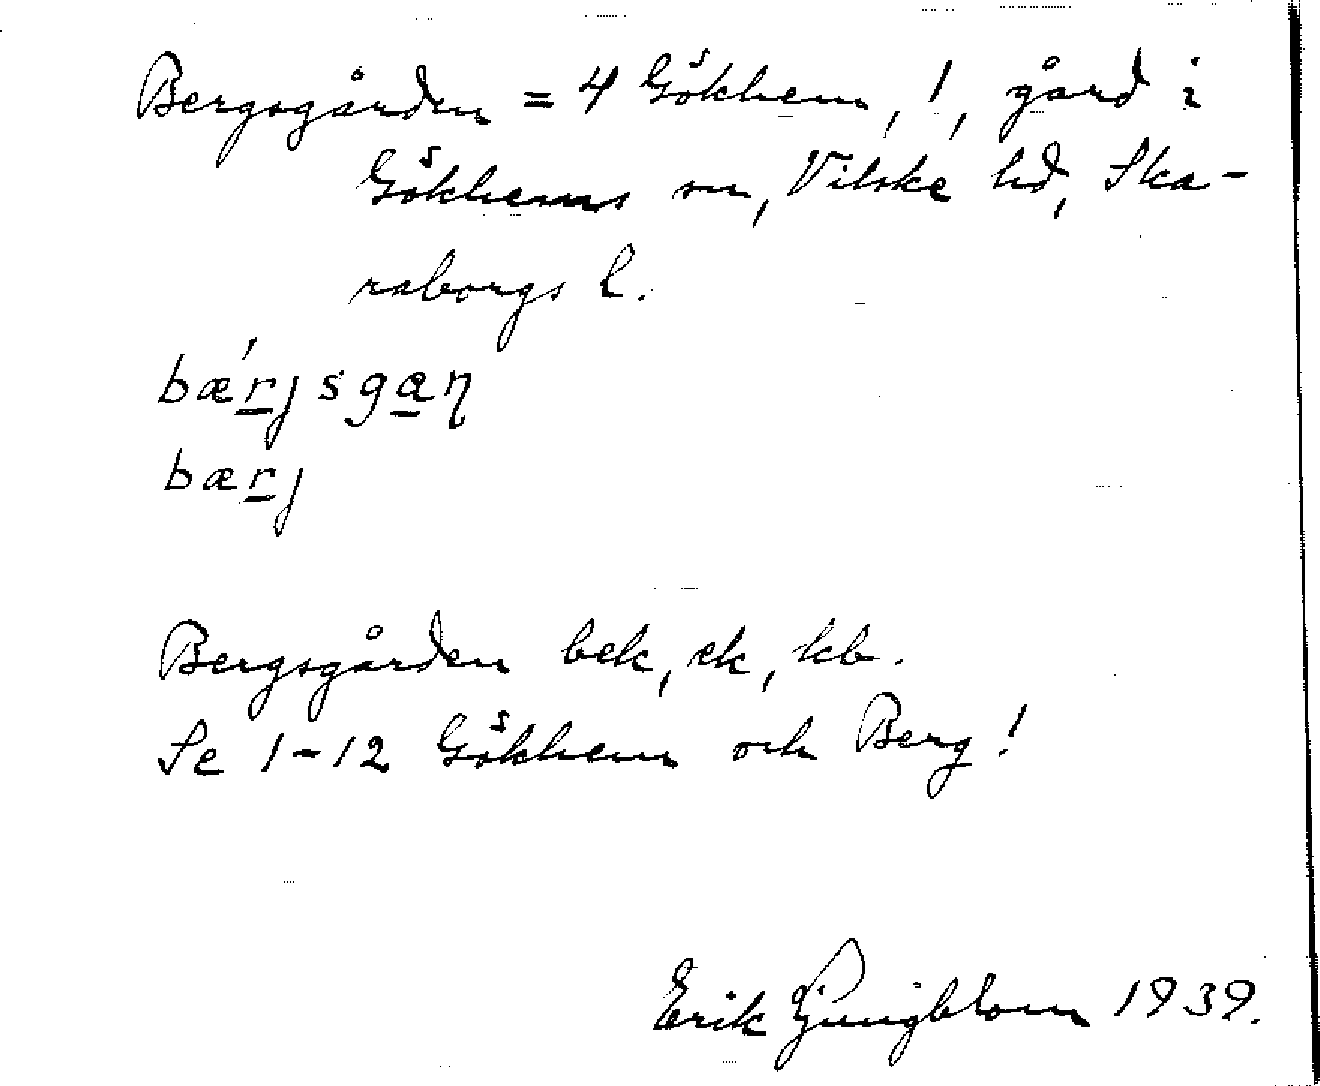 Bergsgården = 4 Gökhem, !, gård i
Gökhems sn, Vilske hd, Ska-
raborgs l.
bǽr̲jsga̲ƞ
bær̲j
Bergsgården bek, ek, kb.
Se 1-12 Gökhem och Berg!
Erik Ljungblom 1939.